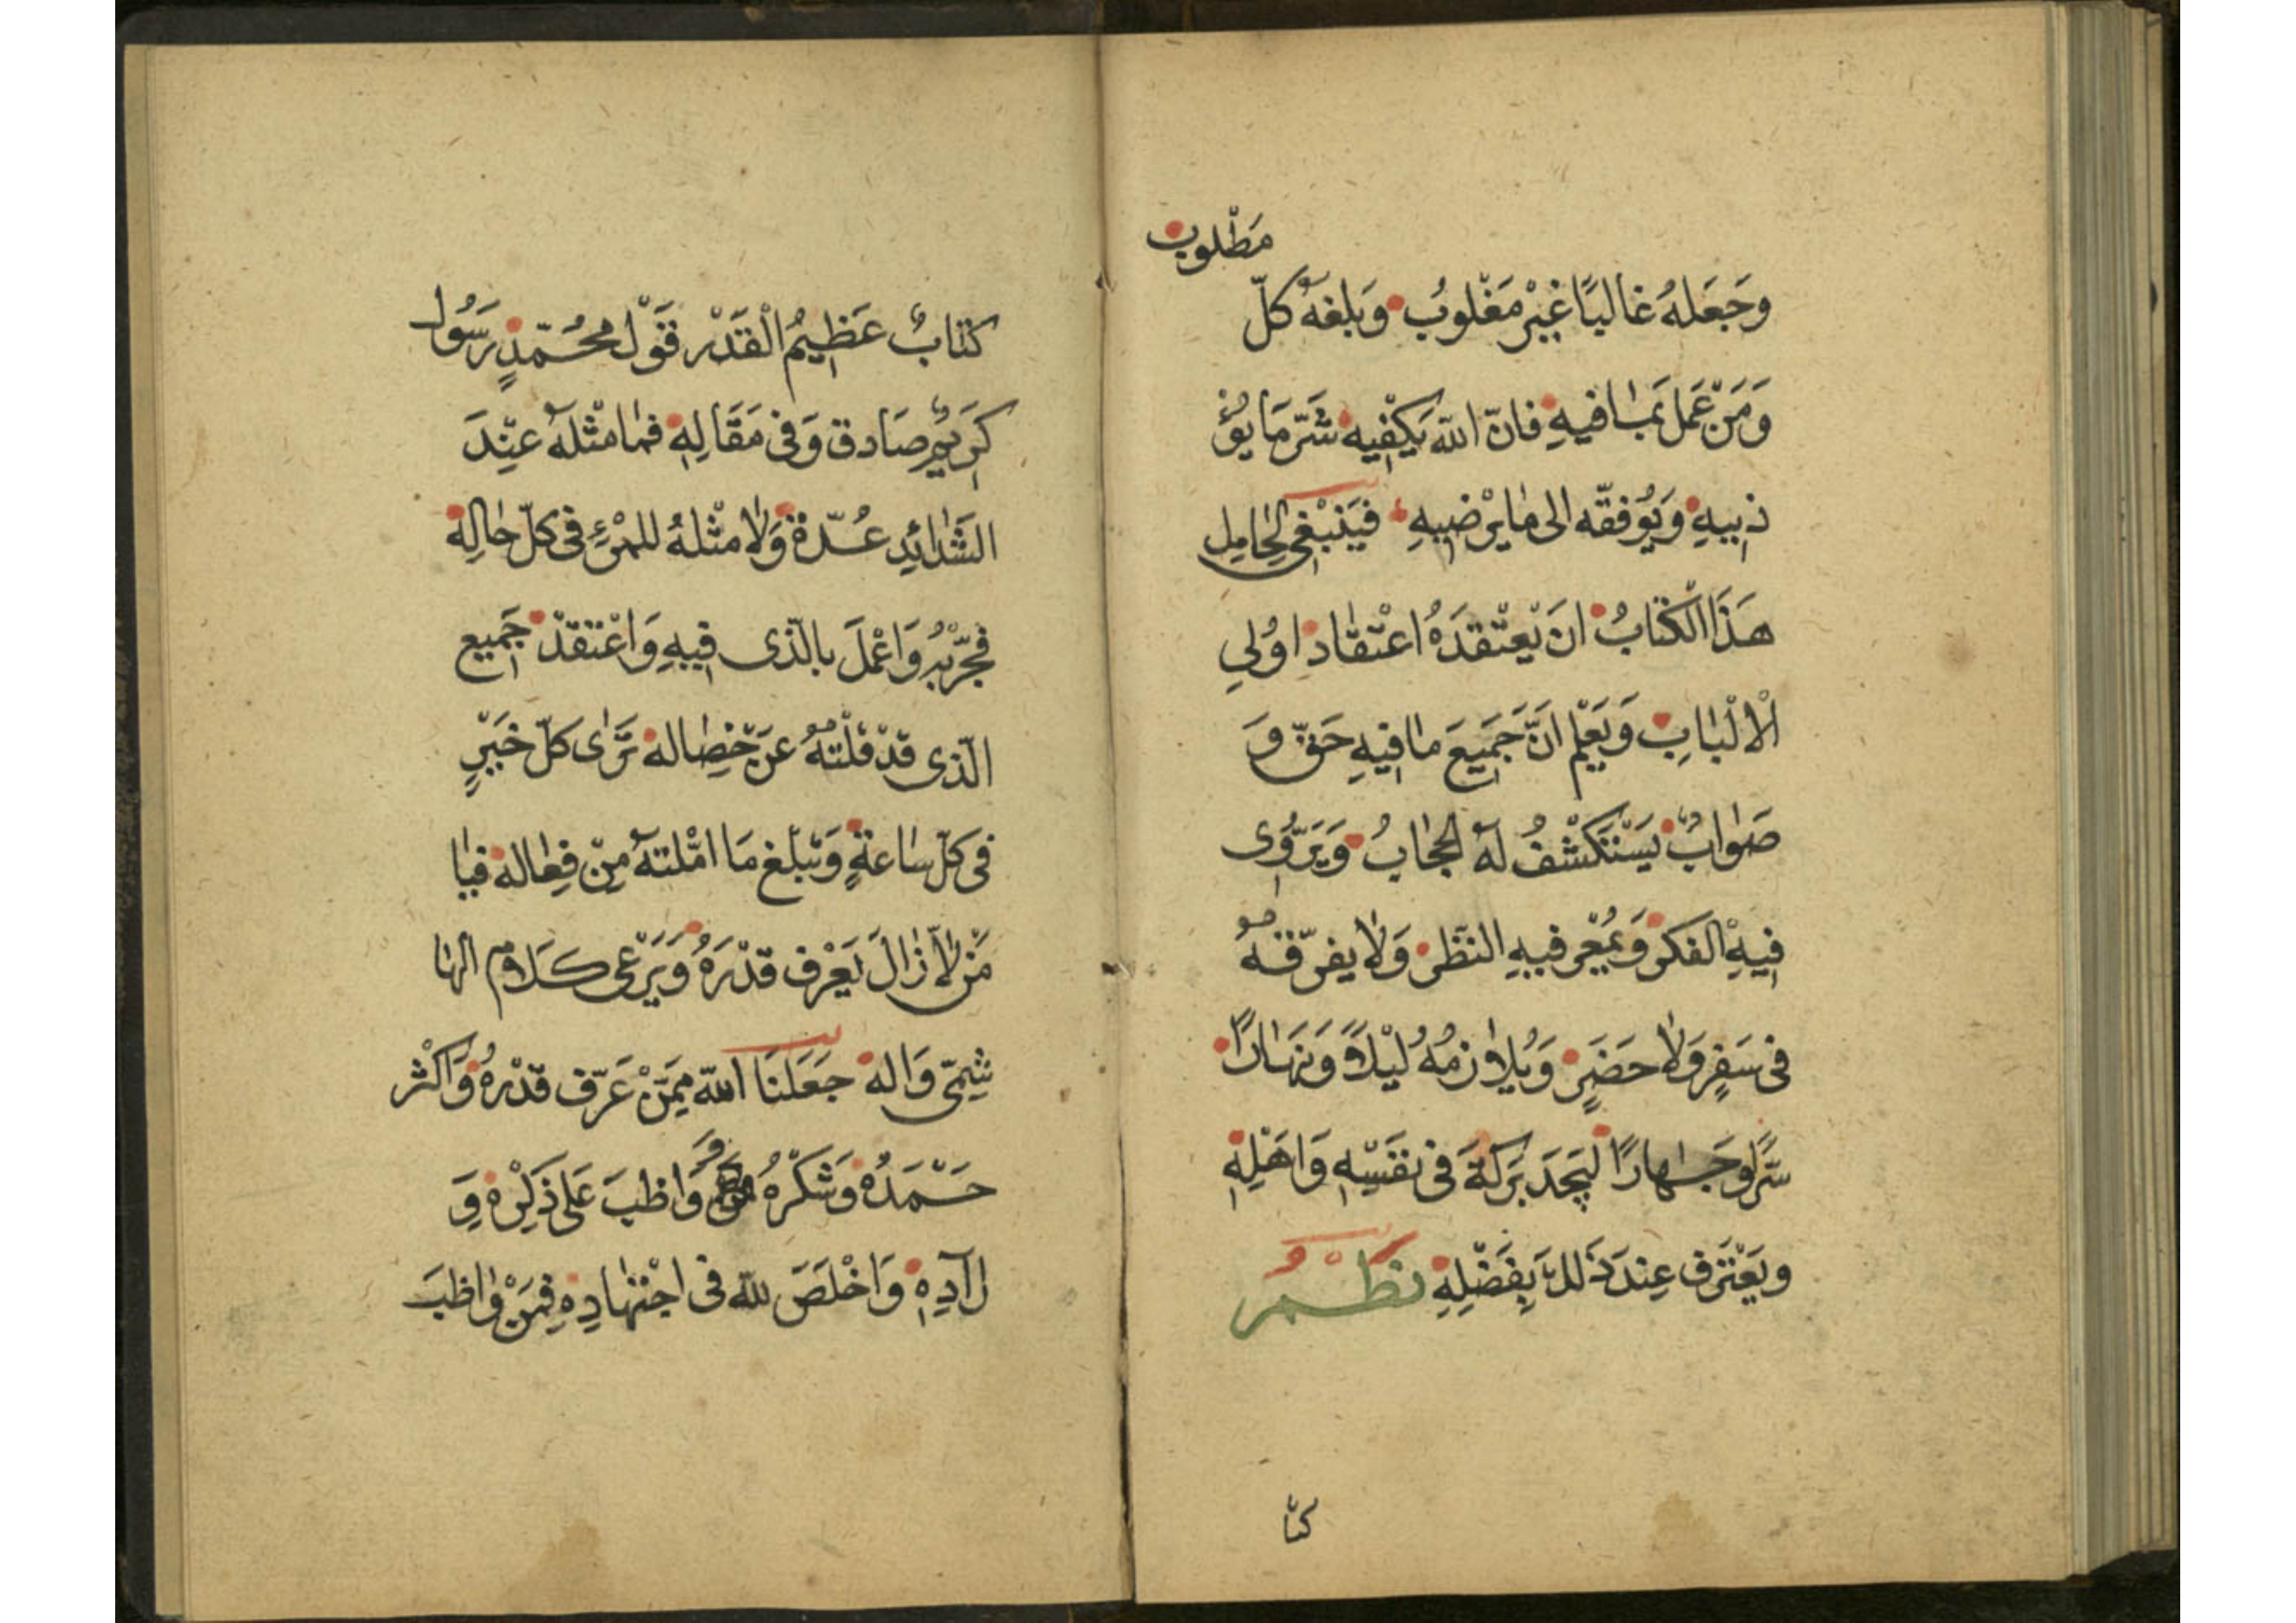 مَطْلوب
وجَعَلهُ غالبًا غَيْر مَغْلوبُ وَبلغهُ كلّ
وَمَنْ عَمل بمَا فيهِ فانّ اللّه يَكْفيهِ شَرّ مَا يؤُ
ذيهِ وَيُوفقّه الى مَا يرْضيهِ فيَنْبَغى لِحَامِل
هَذَا الْكتَابُ انَ يَعتْقدَهُ اعْتقَادِ اوُلى
الْالْبَابِ وَيَعْلم انَّ جَميَعَ مَا فيهِ حَقّ وَ
صَوابٌ يَسْتَكْشفُ لهُ الحجَابُ وَيَرَوّى
فيهِ الفكر وَيمُعْن فيهِ النظَر وَلَا يفرّقهُ
فى سَفرٍ وَلَا حضَرٍ وَيُلَازمُهُ ليْلاً وَنهَارًا
سَّرًا وجَهارًا ليَجدَ بَركَةَ فى نفَسْهِ وَاهَلِهِ
ويَعْترَف عِندَ ذَلكَ بِفضَلِهِ نظْمُ
كتا
كتابٌ عَظِيمُ الْقَدْر قَوْل محُمّدٍ رَسُول
كَريمٍ صَادق وَفى مَقَالِهِ فمَا مثْلهُ عنِدَ
الشَدَائِد عُدّة وَلَا مثْلهُ للمْرءِ فى كلّ حَالِهِ
فجَرّبْهُ وَاعْملَ بالّذى فيهِ وَاعْتقدْ جَميع
الّذى قدْ قلْتهُ عَنْ خِصَاله تَرَى كلّ خَيْرٍ
فى كلّ سَاعةٍ وَتبلغ مَا امّلتهُ منْ فِعَاله فيَا
مَنْ لَا زَالَ يَعْرف قدْرَهُ وَيَرْعى كَلَام الهَا
شمىّ وَاله جَعَلنَا اللّه ممَّنْ عَرّف قدْرهُ وَاكْثر
حَمْدَهُ وَشَكْرهُ وَ وَاظبَ عَلى ذكْرِه وَ
ارآدِهِ وَاخْلَصَ للّه فى اجْتهَادِهِ فمَنْ وَاظبَ